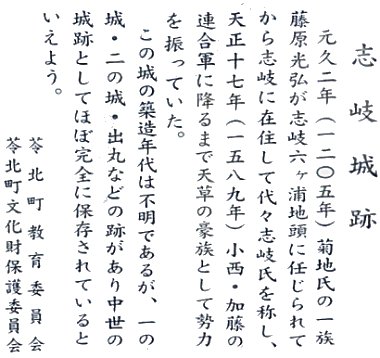 志岐城跡
元久二年（一二〇五年）菊地氏の一族
藤原光弘が志岐六ヶ浦地頭に任じられて
から志岐に在住して代々志岐氏を称し、
天正十七年（一五八九年）小西・加藤の
連合軍に降るまで天草の豪族として勢力
を振っていた。
この城の築造年代は不明であるが、一の
城・二の城・出丸などの跡があり中世の
城跡としてほぼ完全に保存されていると
いえよう。
苓北町教育委員会
苓北町文化財保護委員会